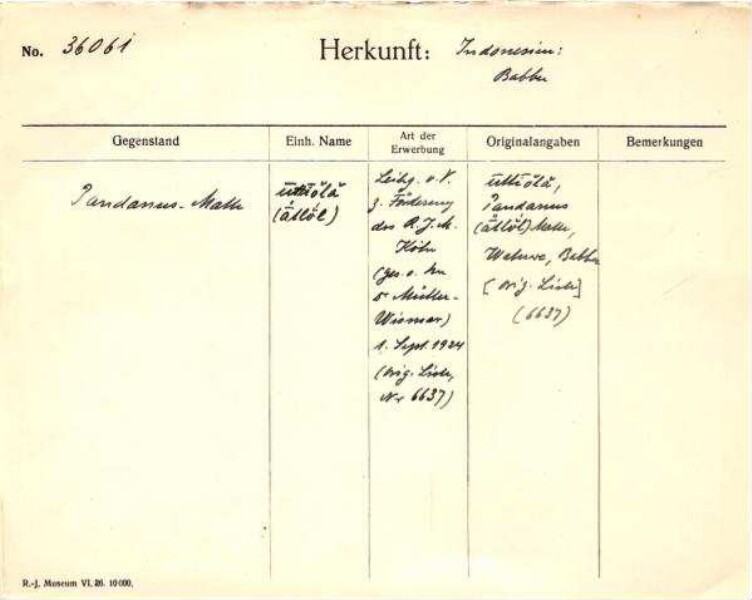 No. 36061
Herkunft: Indonesien:
Babber
Gegenstand
Einh. Name
Art der
Erwerbung
Originalangaben
Bemerkungen
Pandanus-Matte
(ätlöl)
Leihg. v. V.
z. Förderung
des R. J. M.
Köln
(ges. v.
Dr Müller-
Wismar)
1. Sept. 1924
(Orig. Liste,
Nr 6637)
Pandanus
(ätlöl) Matte,
Babber
[Orig. Liste]
(6637)
R.-J. Museum VI. 26. 10000.